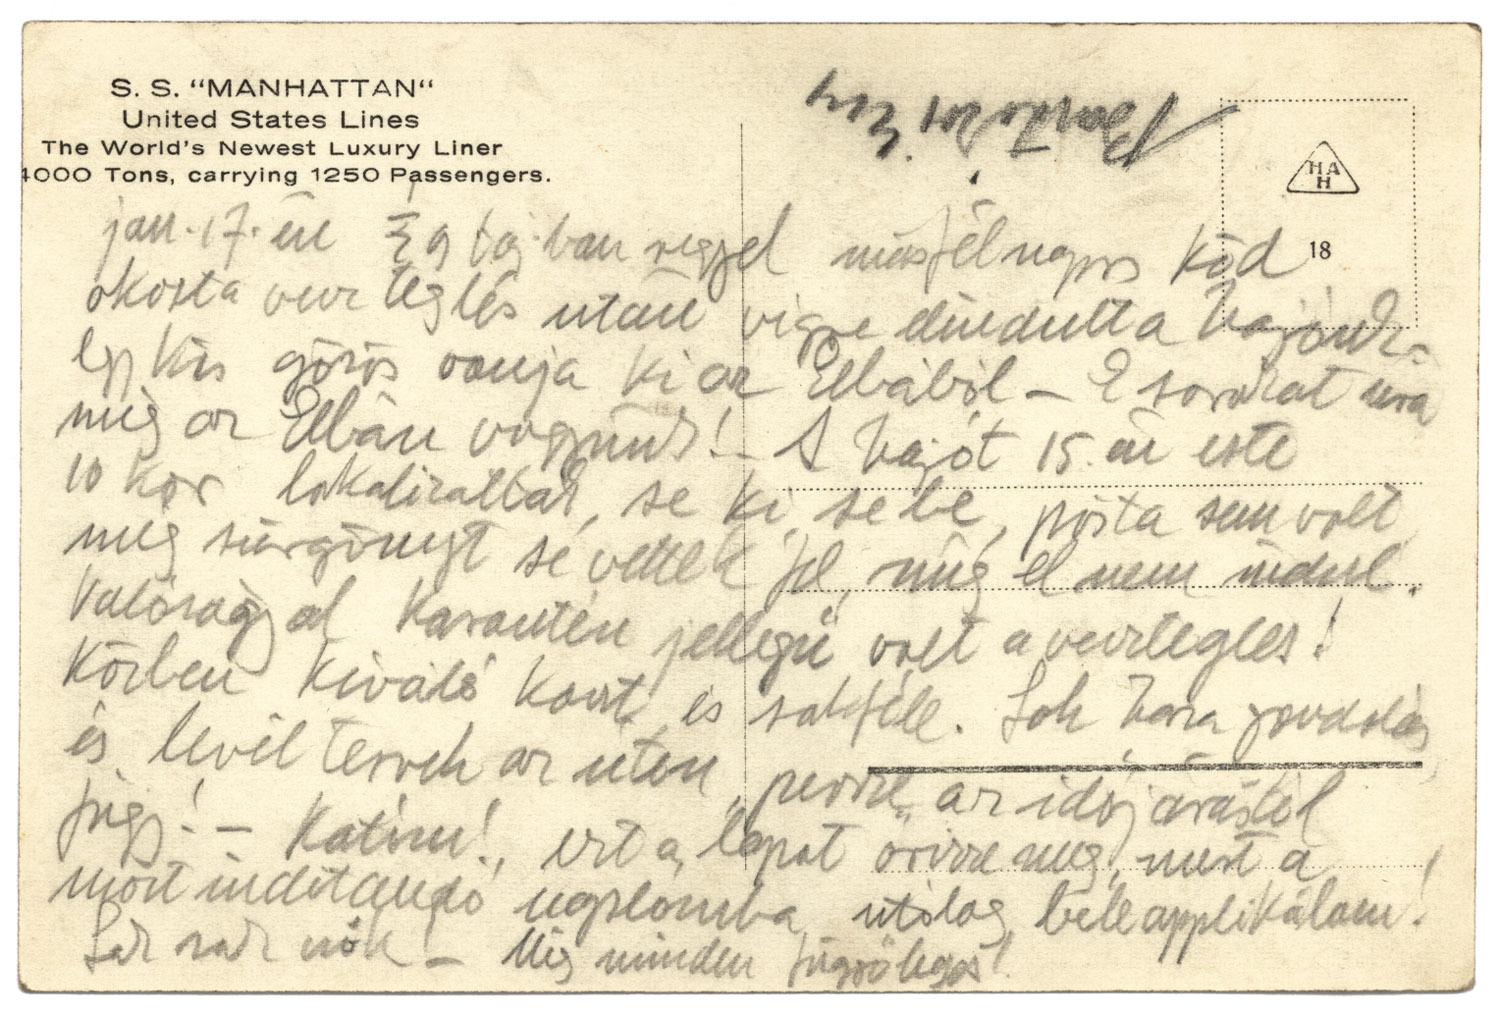 S. S. “MANHATTAN“
United States Lines
The World's Newest Luxury Liner
4000 Tons, carrying 1250 Passengers.
HA
H
18
jan. 17.-én ½ 9 táj.ban reggel másfélnapos köd
okozta veszteglés után végre elindult a hajónk.
Egy kis görös vonja ki az Elbából – E sorokat írva
még az Elbán vagyunk! – A hajót 15.-én este
10 kor lokalizálták, se ki, se be, posta sem volt,
még sürgönyt se vettek fel, míg el nem indul.
Valósággal karantén jellegü volt a vesztegles!
Közben kiváló koszt, és sokféle. Sok haza
és levél tervek az úton, persze az időjárástól
függ! – Katim!, ezt a lapot őrizze meg, mert a
most inditandó naplómba utólag beleapplikálom!
Sok – Még minden